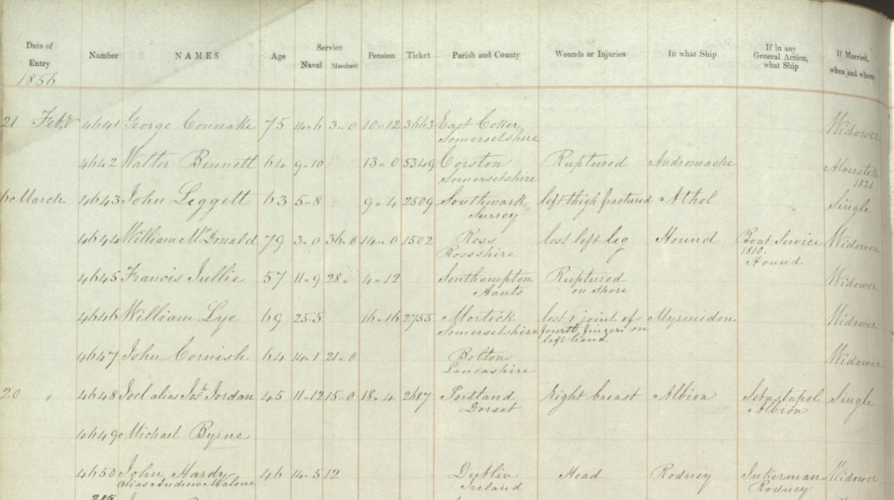 Date of Entry Number NAMES Age Service Naval Merchant Pension Ticket Parish and County Wounds or Injuries In what Ship If in any General Action, what Ship If Married, when and where
1856
21 Feby 4641 George Connake 75 14-6 3-0 10-12 3663 East Coker Somersetshire Widower
4642 Walter Bennett 64 9-10 13-0 5349 Corston Somersetshire Ruptured Andromache 1821
6 March 4643 John Leggett 63 5-8 9-4 2509 Southwark Surrey left thigh fractured Athol Single
4644 William McDonald 79 3-0 36-0 14-0 1502 Ross Rossshire lost left leg Hound Boat Service 1810 Hound Widower
4645 Francis Jullie 57 11-9 28- 4-12 Southampton Hants Ruptured on shore Widower
4646 William Lye 69 25-5 16-16 2755 Martock Somersetshire lost 1 joint of fourth finger on left hand Myrmidon Widower
4647 John Cornish 64 14-1 21-0 Bolton Lancashire Widower
20 " 4648 Joel alias Jos. Jordan 45 11-12 15-0 18-4 2887 Portland Dorset Right breast Albion Sebastopol Albion Single
4649 Michael Byrne
4650 John Hardy alias Andrew Malone 46 14-5 12 Dublin Ireland Head Rodney Inkerman Rodney Widower
215